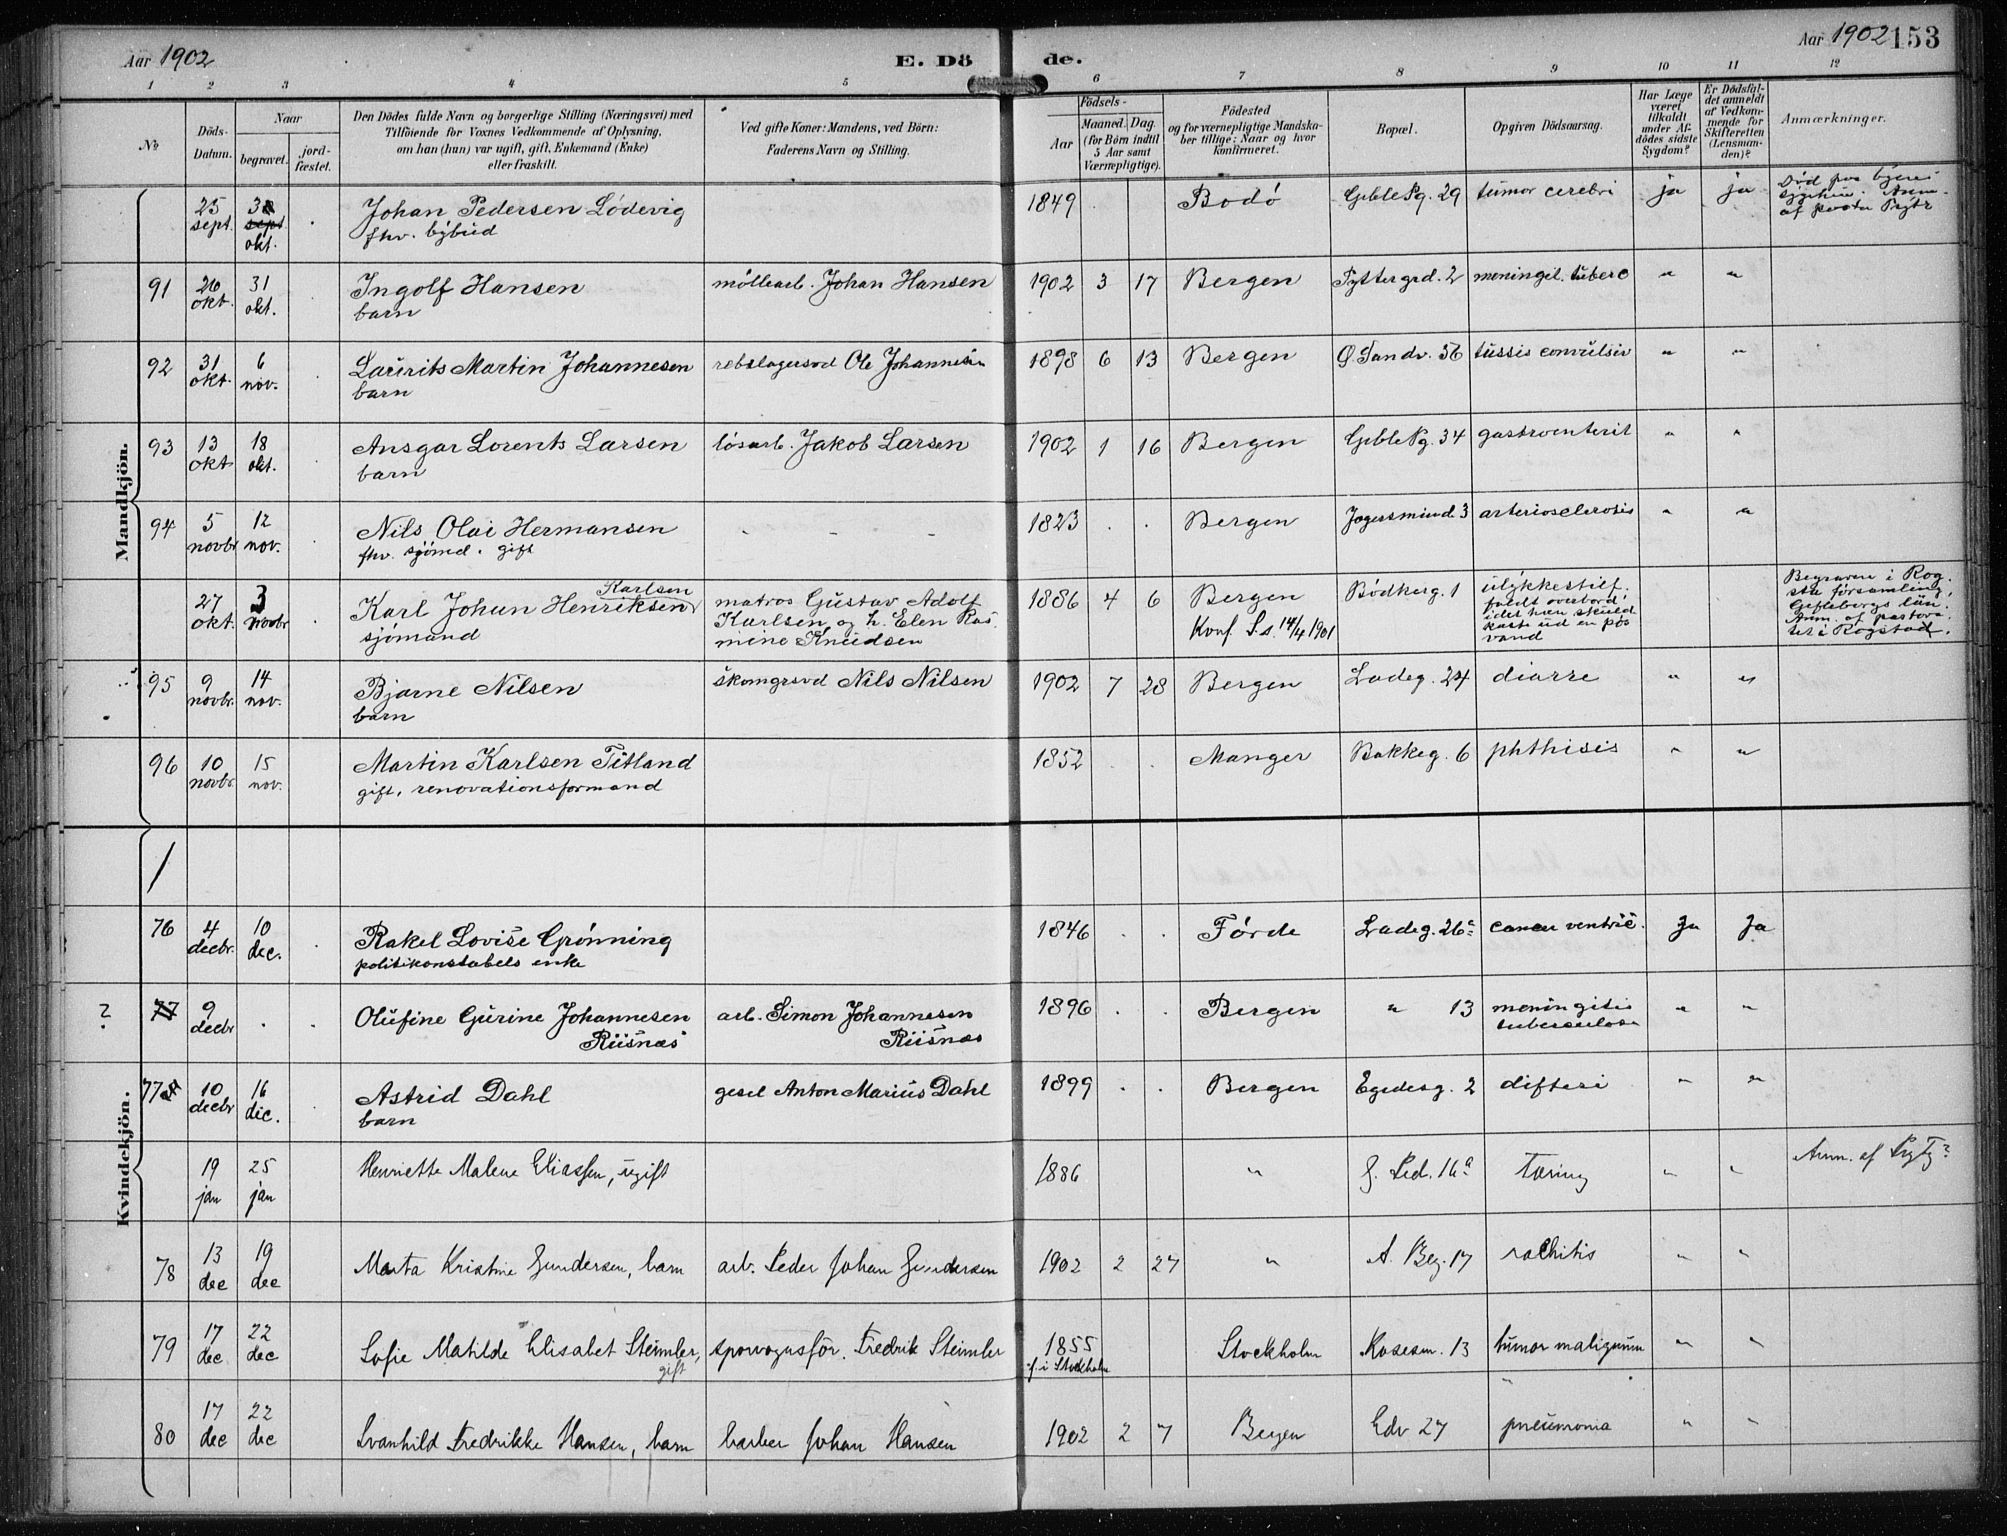 Aar 1902
E. Dö
de.
Aar 1902 153
1 2 3 4 5 6 7 8 9 10 11 12
No
Döds-
Datum.
Naar
begravet.
jord-
fæstet.
Den Dödes fulde Navn og borgerlige Stilling (Næringsvei) med
Tilföiende for Voxnes Vedkommende af Oplysning,
om han (hun) var ugift, gift, Enkemand (Enke)
eller fraskilt.
Ved gifte Koner: Mandens, ved Börn:
Faderens Navn og Stilling.
Födsels-
Aar
Maaned. Dag.
(for Børn indtil
5 Aar samt
Værnepligtige).
Födested
og for værnepligtige Mandska-
ber tillige: Naar og hvor
konfirmeret.
Bopæl.
Opgiven Dödsaarsag.
Har Læge
været
tilkaldt
under Af-
dödes sidste
Sygdom?
Er Dödsfal-
det anmeldt
af Vedkom-
mende for
Skifteretten
(Lensman-
den)?
Anmærkninger.
Mandkjön.
25 sept. 3 sept okt. Johan Pedersen Lödevig 1849 Bodö Geble Pg. 29 tumor cerebri ja ja Död paa byens
fhv. bybud sygehus. Anm.
91 26 okt. 31 okt. Ingolf Hansen möllearb. Johan Hansen 1902 3 17 Bergen Pyttergrd. 2 meningit. tuberc " "
barn
92 31 okt. 6 nov. Laurits Martin Johannesen rebslagersvd Ole Johannesen 1898 6 13 Bergen Ø. Sandv. 56 tussis convulsiv " "
barn
93 13 okt 18 okt. Ansgar Lorents Larsen lösarb. Jakob Larsen 1902 1 16 Bergen Geble Pg. 34 gastroenterit " "
barn
94 5 novbr 12 nov. Nils Olai Hermansen - - - 1823 . . Bergen Jegersmind. 3 arteriosclerosis " "
fhv. sjömd. gift
27 okt. 3 novbr Karl Johan Henriksen Karlsen matros Gustav Adolf 1886 4 6 Bergen Bödkersg. 1 ulykkestilf.
sjömand Karlsen og h. Elen Ras Konf. S.s. 14/4 1901 faldt overbord,
mine Knudsen idet han skulde
kaste ud en pøs
vand
Begraven i Rog.
sta församling,
Gefleborgs län.
Anm. af pastora
tet i Rogstad.
95 9 novbr. 14 nov. Bjarne Nilsen skomgrsvd Nils Nilsen 1902 7 28 Bergen Ladeg. 24 diarre " "
barn
96 10 novbr. 15 nov. Martin Karlsen Titland 1852 . . Manger Bakkeg. 6 phthisis " "
gift, renovationsformand
Kvindekjön.
76 4 decbr. 10 dec. Rakel Lovise Grönning 1846 . . Förde Ladeg. 26a cancer ventric. Ja Ja
politikonstabels enke
? 77 9 decbr . . Olufine Gurine Johannesen arb. Simon Johannesen 1896 . . Bergen " 13 meningitis " "
Riisnæs Riisnæs tuberculosa
77 10 decbr 16 dec. Astrid Dahl gesel Anton Marius Dahl 1899 . . Bergen Egedesg. 2 difteri " "
barn
19 jan 25 jan Henriette Malene Eliassen, ugift 1886 " 16a Tæring " " Anm. af
78 13 dec 19 dec Marta Kristine Gundersen, barn arb. Peder Johan Gundersen 1902 2 27 " 17 rachitis " "
79 17 dec 22 dec Sofie Matilde Elisabet Steimler, sporvognsför. Fredrik Steimler 1855 Stockholm Rosesm. 13 tumor malignum " "
gift f. i Stockholm
80 17 dec 22 dec Svanhild Fredrikke Hansen, barn barber Johan Hansen 1902 2 7 Bergen Edv 27 pneumonia " "